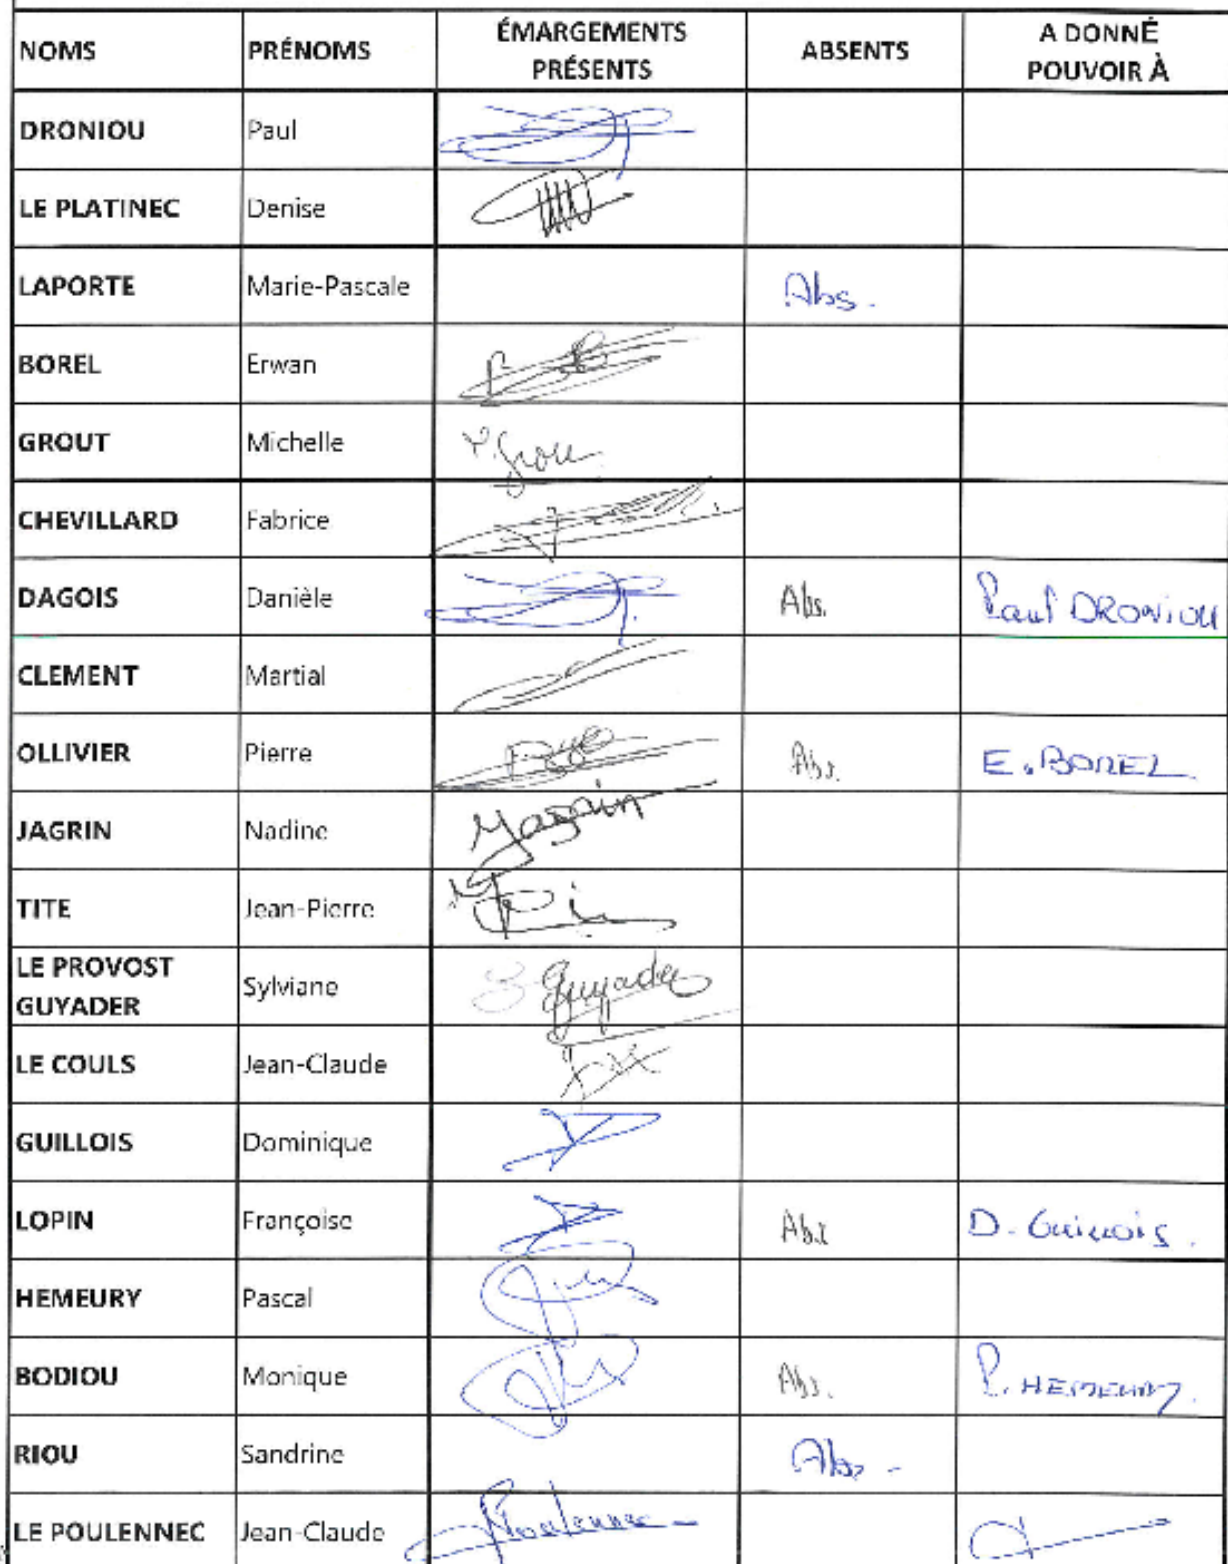 NOMS PRÉNOMS ÉMARGEMENTS PRÉSENTS ABSENTS A DONNÉ POUVOIR À
DRONIOU Paul
LE PLATINEC Denise
LAPORTE Marie-Pascale Abs.
BOREL Erwan
GROUT Michelle
CHEVILLARD Fabrice
DAGOIS Danièle Abs. Paul DRONIOU
CLEMENT Martial
OLLIVIER Pierre Abs. E. BOREL
JAGRIN Nadine Jagrin
TITE Jean-Pierre
LE PROVOST GUYADER Sylviane Guyader
LE COULS Jean-Claude
GUILLOIS Dominique
LOPIN Françoise Abs D. Guillois.
HEMEURY Pascal
BODIOU Monique Abs. P. HEMEURY.
RIOU Sandrine Abs -
LE POULENNEC Jean-Claude Poulennec